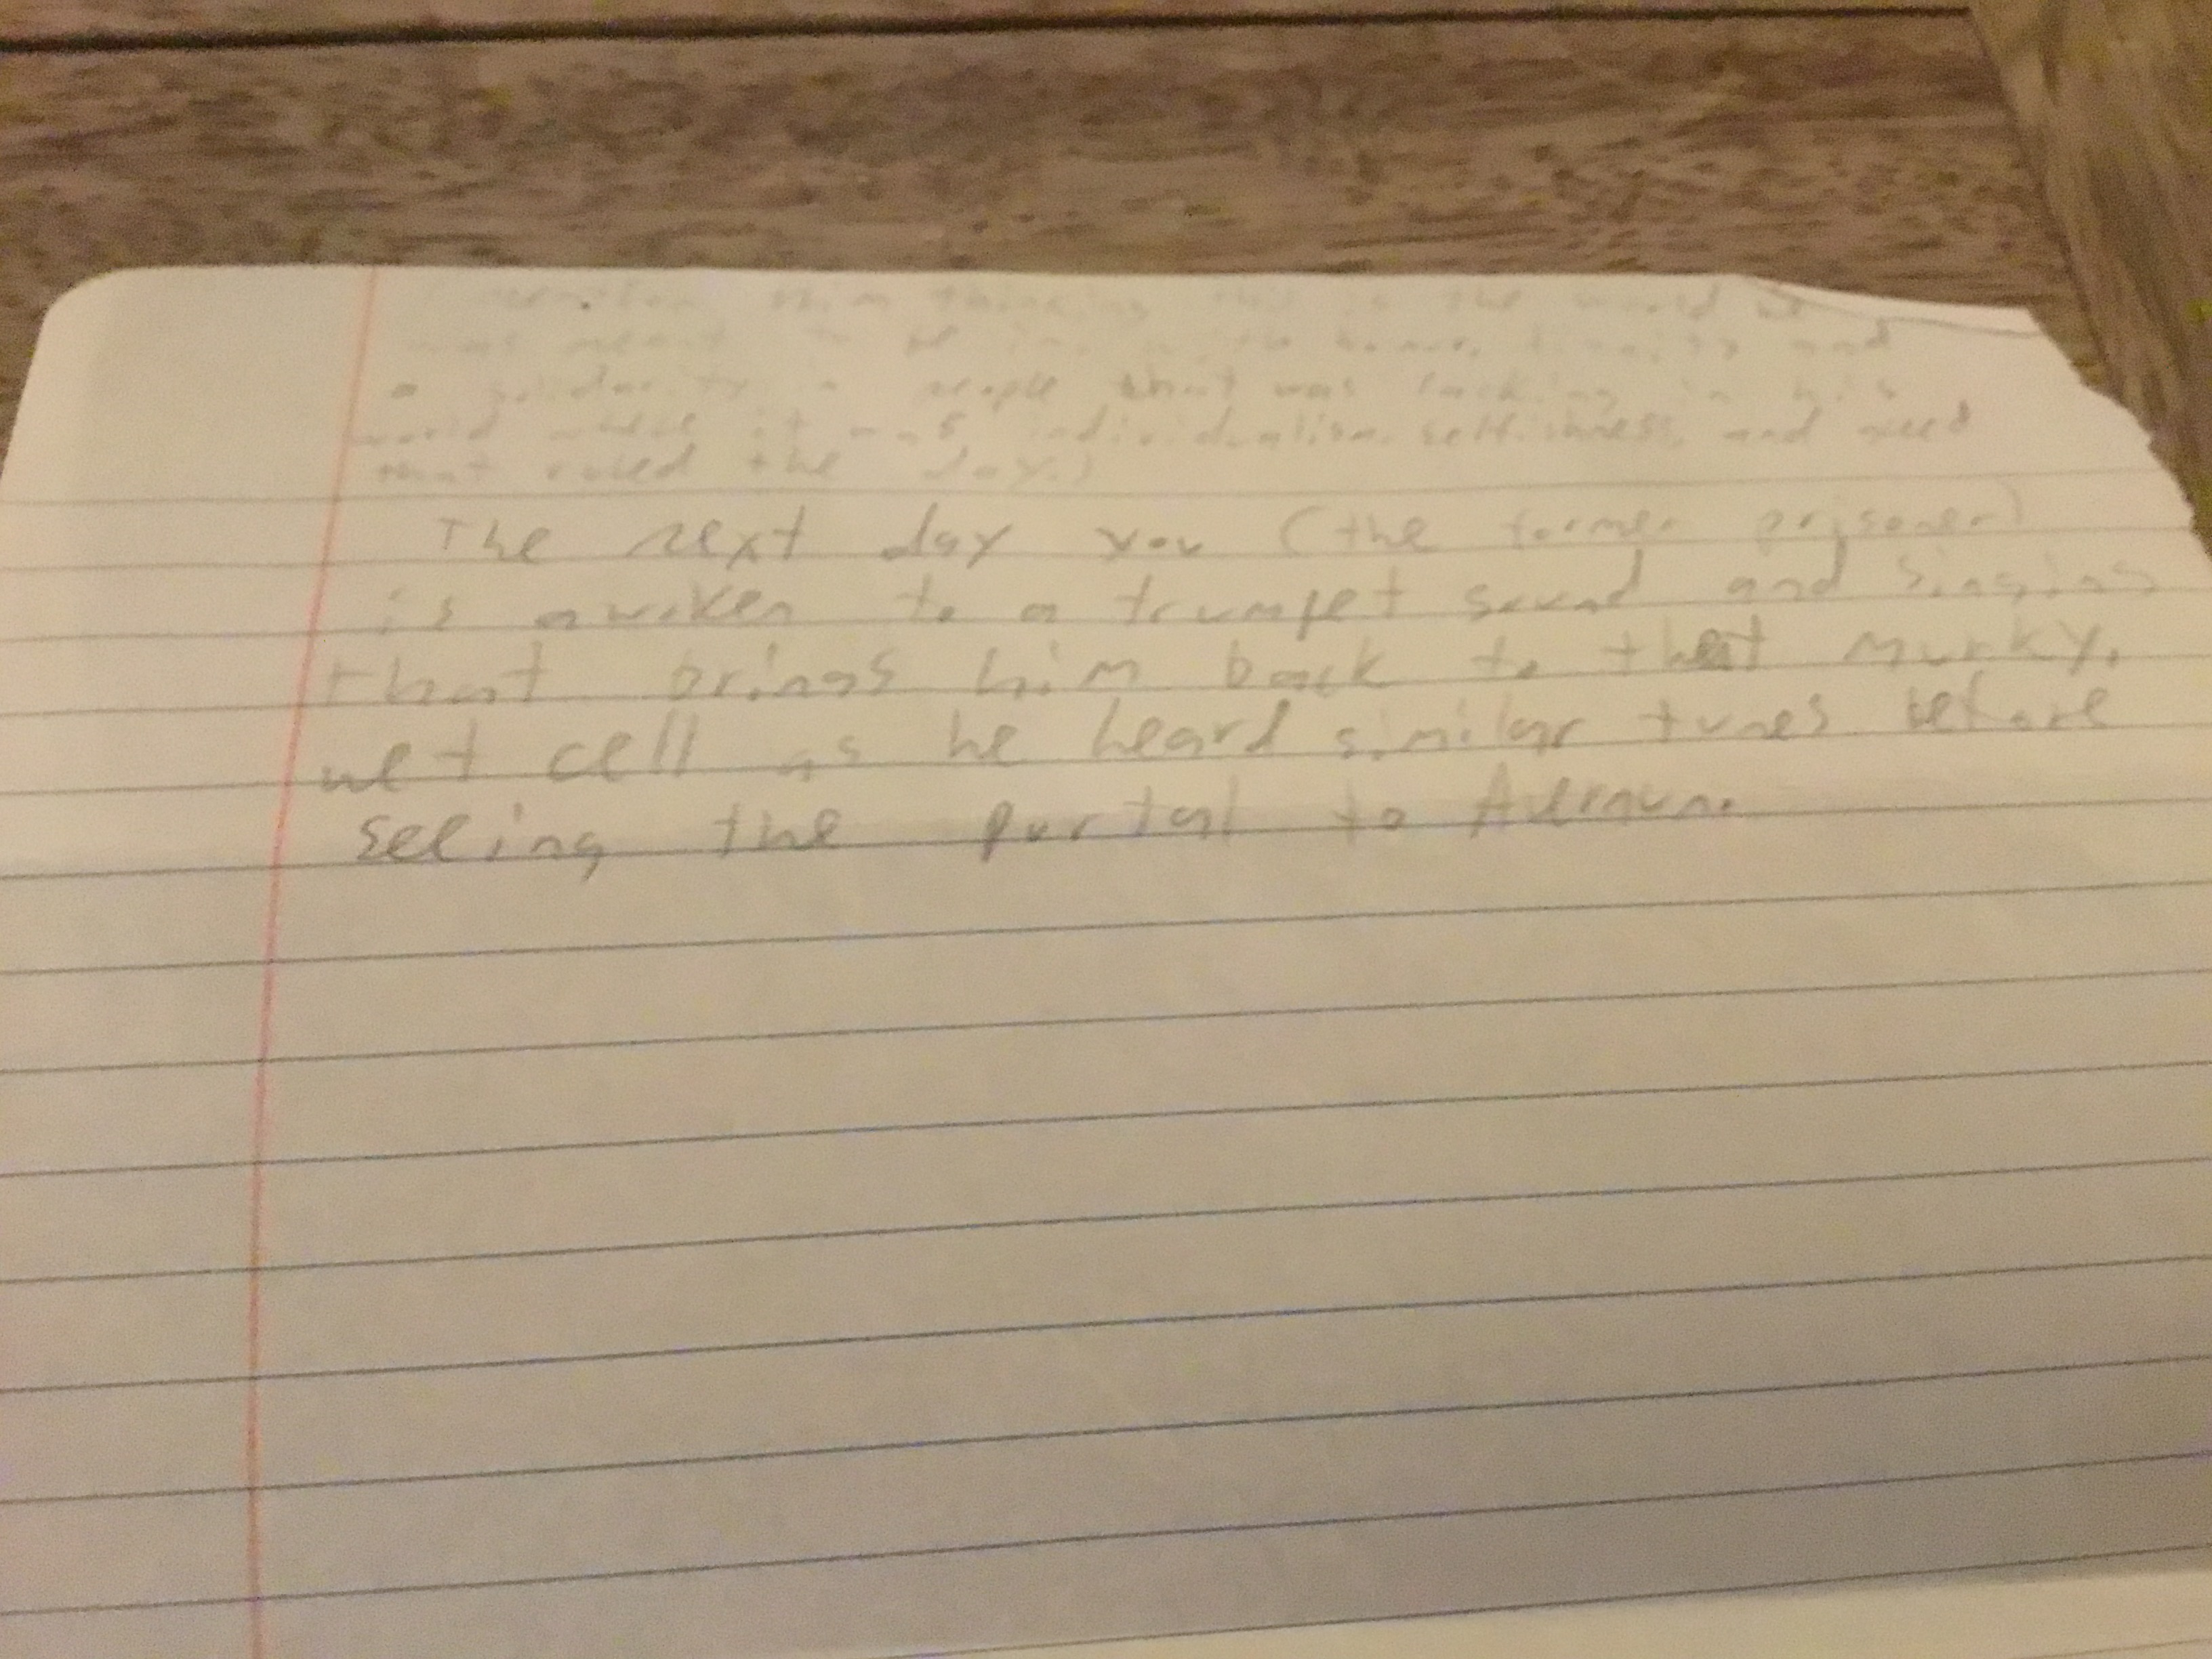 him thinking this is the world he
was meant to be in, with honor, and
a in people that was lacking in his
world where it was individualism, selfishness, and greed
that ruled the day.)
The next day you (the former prisoner)
is awoken to a trumpet sound and singing
that brings him back to that murky,
wet cell as he heard similar tunes before
seeing the portal to